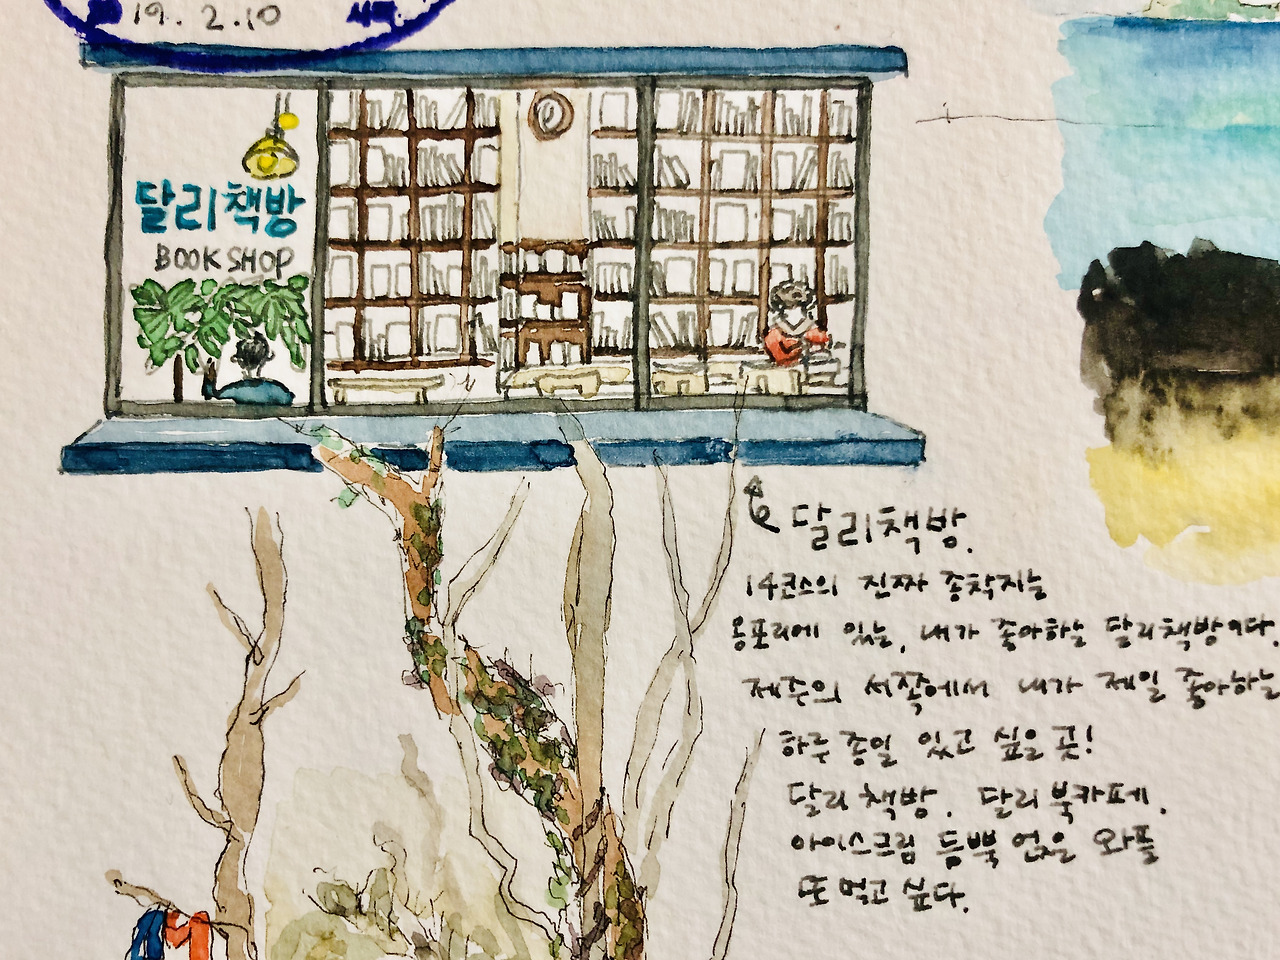 19. 2. 10
달리책방
BOOKSHOP
달리책방.
14코스의 진짜 종착지는
옹포리에 있는, 내가 좋아하는 달리책방이다.
제주의 서쪽에서 내가 제일 좋아하는
하루종일 있고 싶은 곳!
달리책방. 달리북카페.
아이스크림 듬뿍 얹은 와플
또 먹고 싶다.